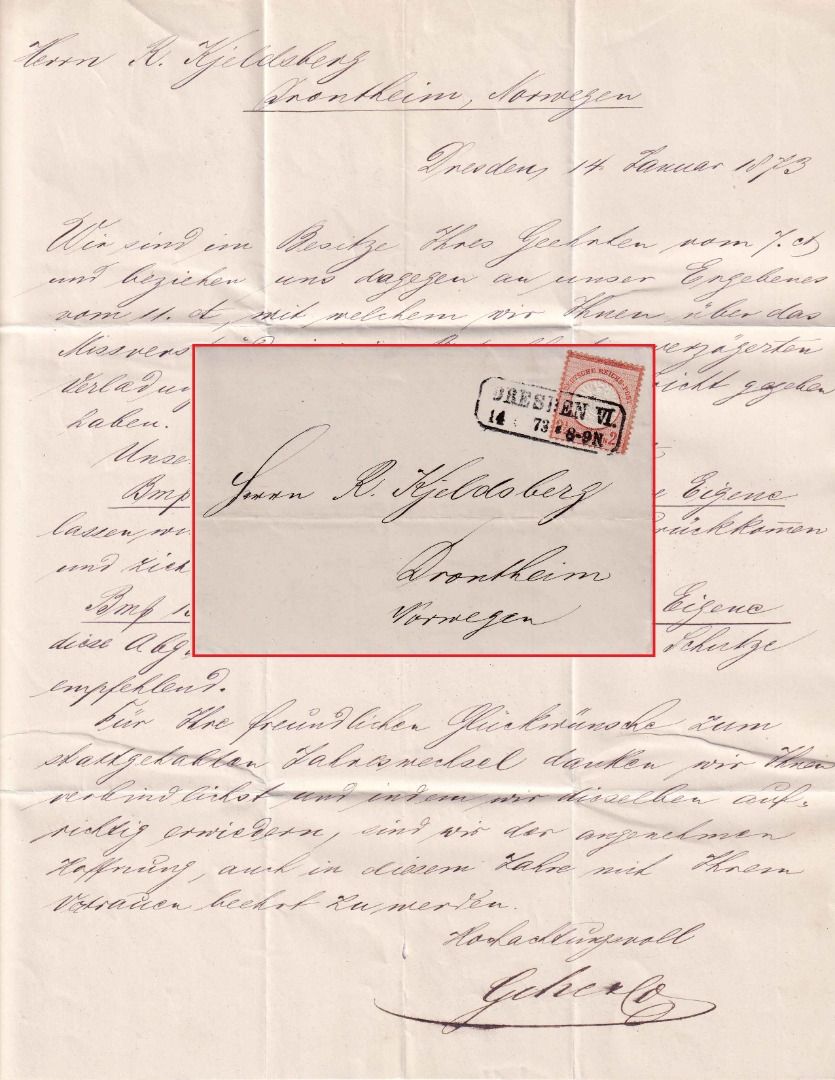 Herrn R. Kjeldsberg
Drontheim, Norwegen
Dresden, 14 Januar 1873
Wir sind im Besitze Ihres Geehrten vom 7. ct
und beziehen uns dagegen an unser Ergebenes
vom 11. ct, mit welchem wir Ihnen über das
Missvers verzögerten
Verladun icht gegeben
haben.
Unse
Bmf Eigene
lassen, wi rückkomen
und zieh
Bmf Eigene
diese Abg Schutze
empfehlend.
Für Ihre freundlichen Glückwünsche zum
stattgehabten Jahreswechsel danken wir Ihnen
verbindlichst und indem wir dieselben auf-
richtig erwiedern, sind wir der angenehmen
Hoffnung, auch in diesem Jahre mit Ihrem
Vertrauen beehrt zu werden.
Hochachtungsvoll
DEUTSCHE REICHS-POST
DRESDEN VI.
14 73 8-9N
Herrn R. Kjeldsberg
Drontheim
Norwegen